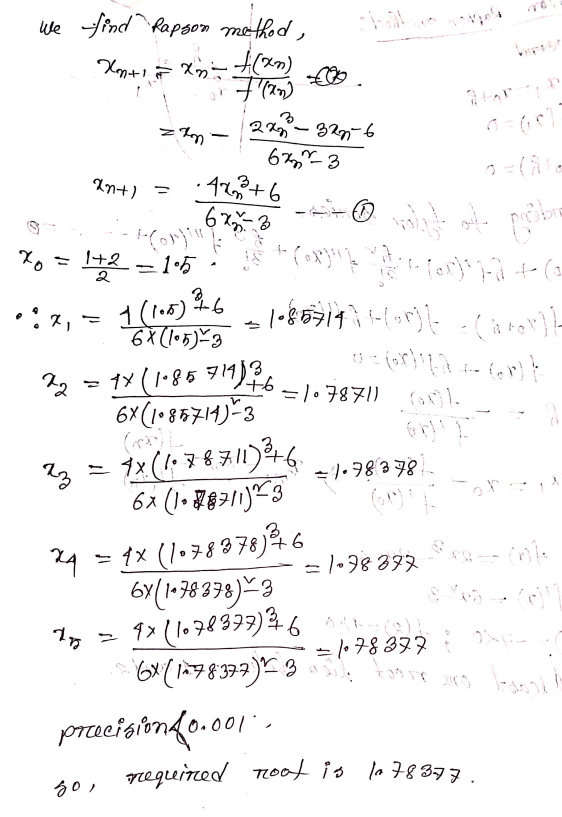 We find Rapson method,
xn+1 = xn - f(xn) / f'(xn)
= xn - (2xn³ - 3xn - 6) / (6xn² - 3)
xn+1 = (4xn³ + 6) / (6xn² - 3) --- ①
x0 = (1+2) / 2 = 1.5
∴ x1 = (4(1.5)³ + 6) / (6×(1.5)² - 3) = 1.85714
x2 = (4×(1.85714)³ + 6) / (6×(1.85714)² - 3) = 1.78711
x3 = (4×(1.78711)³ + 6) / (6×(1.78711)² - 3) = 1.78378
x4 = (4×(1.78378)³ + 6) / (6×(1.78378)² - 3) = 1.78377
x5 = (4×(1.78377)³ + 6) / (6×(1.78377)² - 3) = 1.78377
precision 0.001
so, required root is 1.78377.